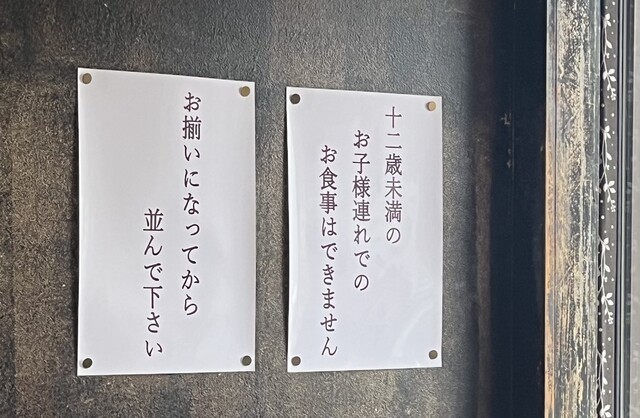 十二歳未満の
お子様連れでの
お食事はできません
お揃いになってから
並んで下さい